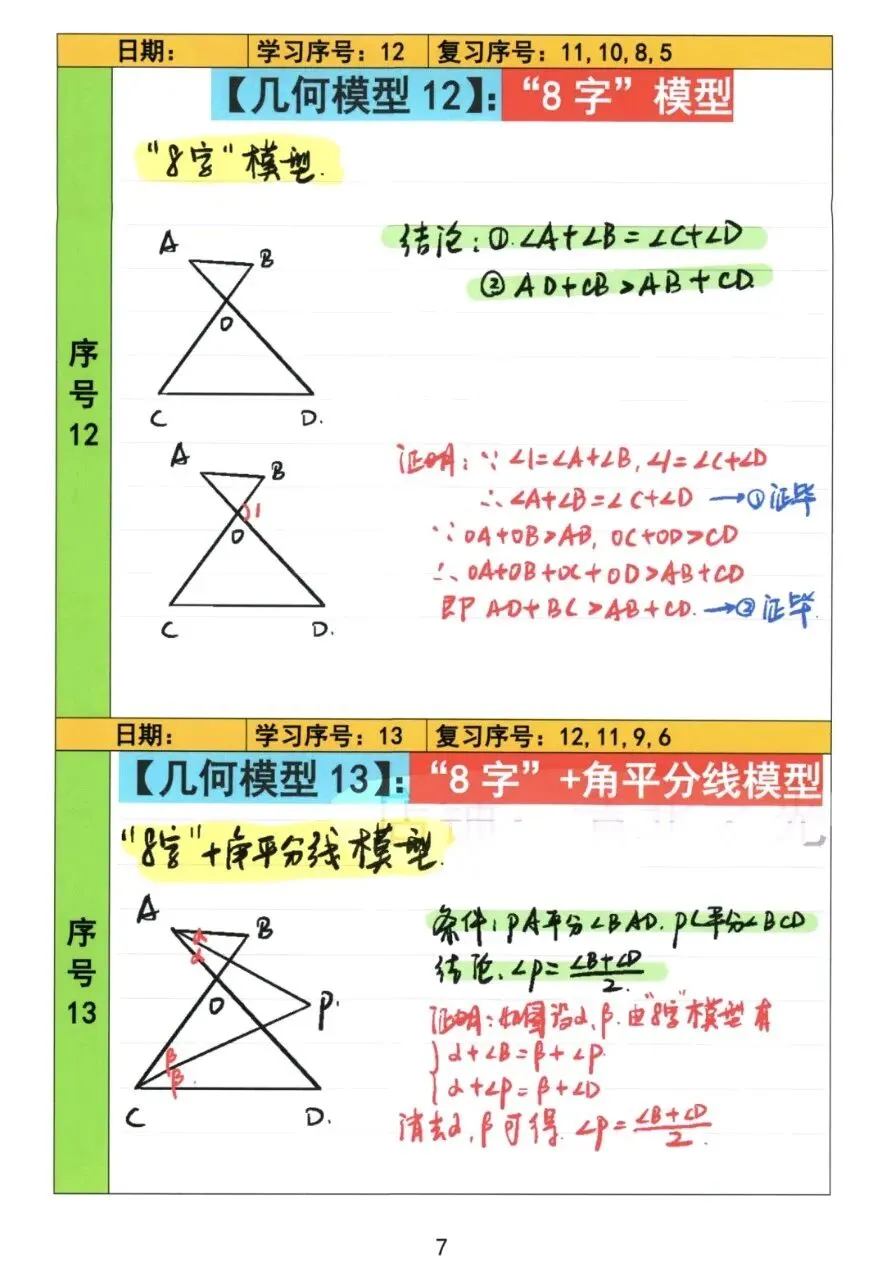 日期： 学习序号：12 复习序号：11,10,8,5
【几何模型 12】：“8 字”模型
“8字”模型.
A
B
O
C
D.
结论：①.∠A+∠B=∠C+∠D
②AD+CB>AB+CD.
序号12
A
B
1
O
C
D.
证明：∵∠1=∠A+∠B,∠1=∠C+∠D
∴∠A+∠B=∠C+∠D →①证毕
∵OA+OB>AB, OC+OD>CD
∴OA+OB+OC+OD>AB+CD
即 AD+BC>AB+CD. →②证毕.
日期： 学习序号：13 复习序号：12,11,9,6
【几何模型 13】：“8 字”+角平分线模型
“8字”+角平分线模型.
序号13
A
B
α
α
O
P.
β
β
C
D.
条件：PA平分∠BAD.PC平分∠BCD
结论.∠P=(∠B+∠D)/2.
证明：如图设α,β.由“8字”模型有
{α+∠B=β+∠P
{α+∠P=β+∠D
消去α,β可得.∠P=(∠B+∠D)/2.
7